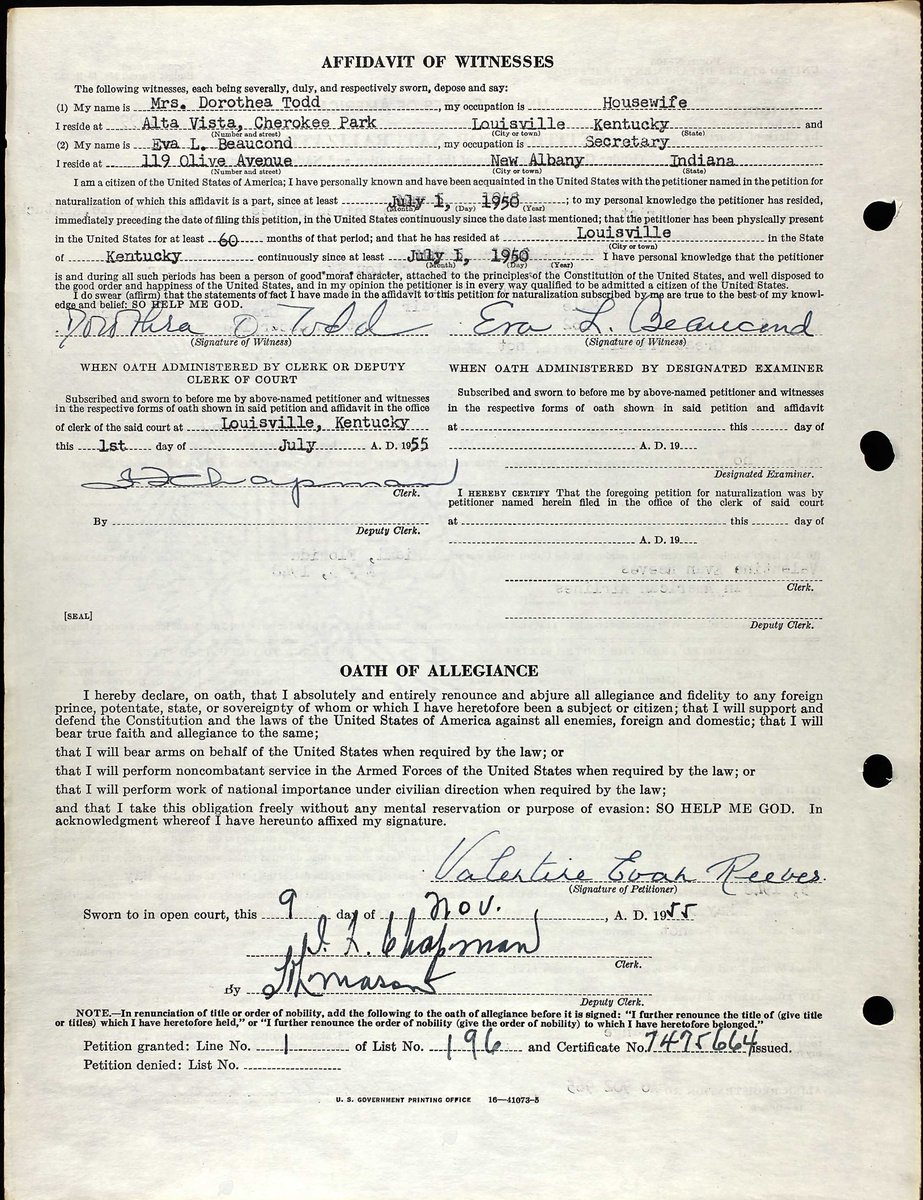 AFFIDAVIT OF WITNESSES
The following witnesses, each being severally, duly, and respectively sworn, depose and say:
(1) My name is Mrs. Dorothea Todd, my occupation is Housewife
I reside at Alta Vista, Cherokee Park Louisville Kentucky and
(Number and street) (City or town) (State)
(2) My name is Eva L. Beaucond, my occupation is Secretary
I reside at 119 Olive Avenue New Albany Indiana
(Number and street) (City or town) (State)
I am a citizen of the United States of America; I have personally known and have been acquainted in the United States with the petitioner named in the petition for
naturalization of which this affidavit is a part, since at least July 1, 1950; to my personal knowledge the petitioner has resided,
(Month) (Day) (Year)
immediately preceding the date of filing this petition, in the United States continuously since the date last mentioned; that the petitioner has been physically present
in the United States for at least 60 months of that period; and that he has resided at Louisville in the State
(City or town)
of Kentucky continuously since at least July 1, 1950 I have personal knowledge that the petitioner
(Month) (Day) (Year)
is and during all such periods has been a person of good moral character, attached to the principles of the Constitution of the United States, and well disposed to
the good order and happiness of the United States, and in my opinion the petitioner is in every way qualified to be admitted a citizen of the United States.
I do swear (affirm) that the statements of fact I have made in the affidavit to this petition for naturalization subscribed by me are true to the best of my knowl-
edge and belief: SO HELP ME GOD.
Dorothea O. Todd Eva L. Beaucond
(Signature of Witness) (Signature of Witness)
WHEN OATH ADMINISTERED BY CLERK OR DEPUTY
CLERK OF COURT
Subscribed and sworn to before me by above-named petitioner and witnesses
in the respective forms of oath shown in said petition and affidavit in the office
of clerk of the said court at Louisville, Kentucky
this 1st day of July A. D. 1955
I F Chapman
Clerk.
By
Deputy Clerk.
[SEAL]
WHEN OATH ADMINISTERED BY DESIGNATED EXAMINER
Subscribed and sworn to before me by above-named petitioner and witnesses
in the respective forms of oath shown in said petition and affidavit
at this day of
A. D. 19
Designated Examiner.
I HEREBY CERTIFY That the foregoing petition for naturalization was by
petitioner named herein filed in the office of the clerk of said court
at this day of
A. D. 19
Clerk.
Deputy Clerk.
OATH OF ALLEGIANCE
I hereby declare, on oath, that I absolutely and entirely renounce and abjure all allegiance and fidelity to any foreign
prince, potentate, state, or sovereignty of whom or which I have heretofore been a subject or citizen; that I will support and
defend the Constitution and the laws of the United States of America against all enemies, foreign and domestic; that I will
bear true faith and allegiance to the same;
that I will bear arms on behalf of the United States when required by the law; or
that I will perform noncombatant service in the Armed Forces of the United States when required by the law; or
that I will perform work of national importance under civilian direction when required by the law;
and that I take this obligation freely without any mental reservation or purpose of evasion: SO HELP ME GOD. In
acknowledgment whereof I have hereunto affixed my signature.
Valentine Evan Reeves
(Signature of Petitioner)
Sworn to in open court, this 9 day of Nov., A. D. 1955
I. F. Chapman
Clerk.
By Mason
Deputy Clerk.
NOTE.—In renunciation of title or order of nobility, add the following to the oath of allegiance before it is signed: "I further renounce the title of (give title
or titles) which I have heretofore held," or "I further renounce the order of nobility (give the order of nobility) to which I have heretofore belonged."
Petition granted: Line No. 1 of List No. 196 and Certificate No. 7475664 issued.
Petition denied: List No.
U. S. GOVERNMENT PRINTING OFFICE 16—41073-5